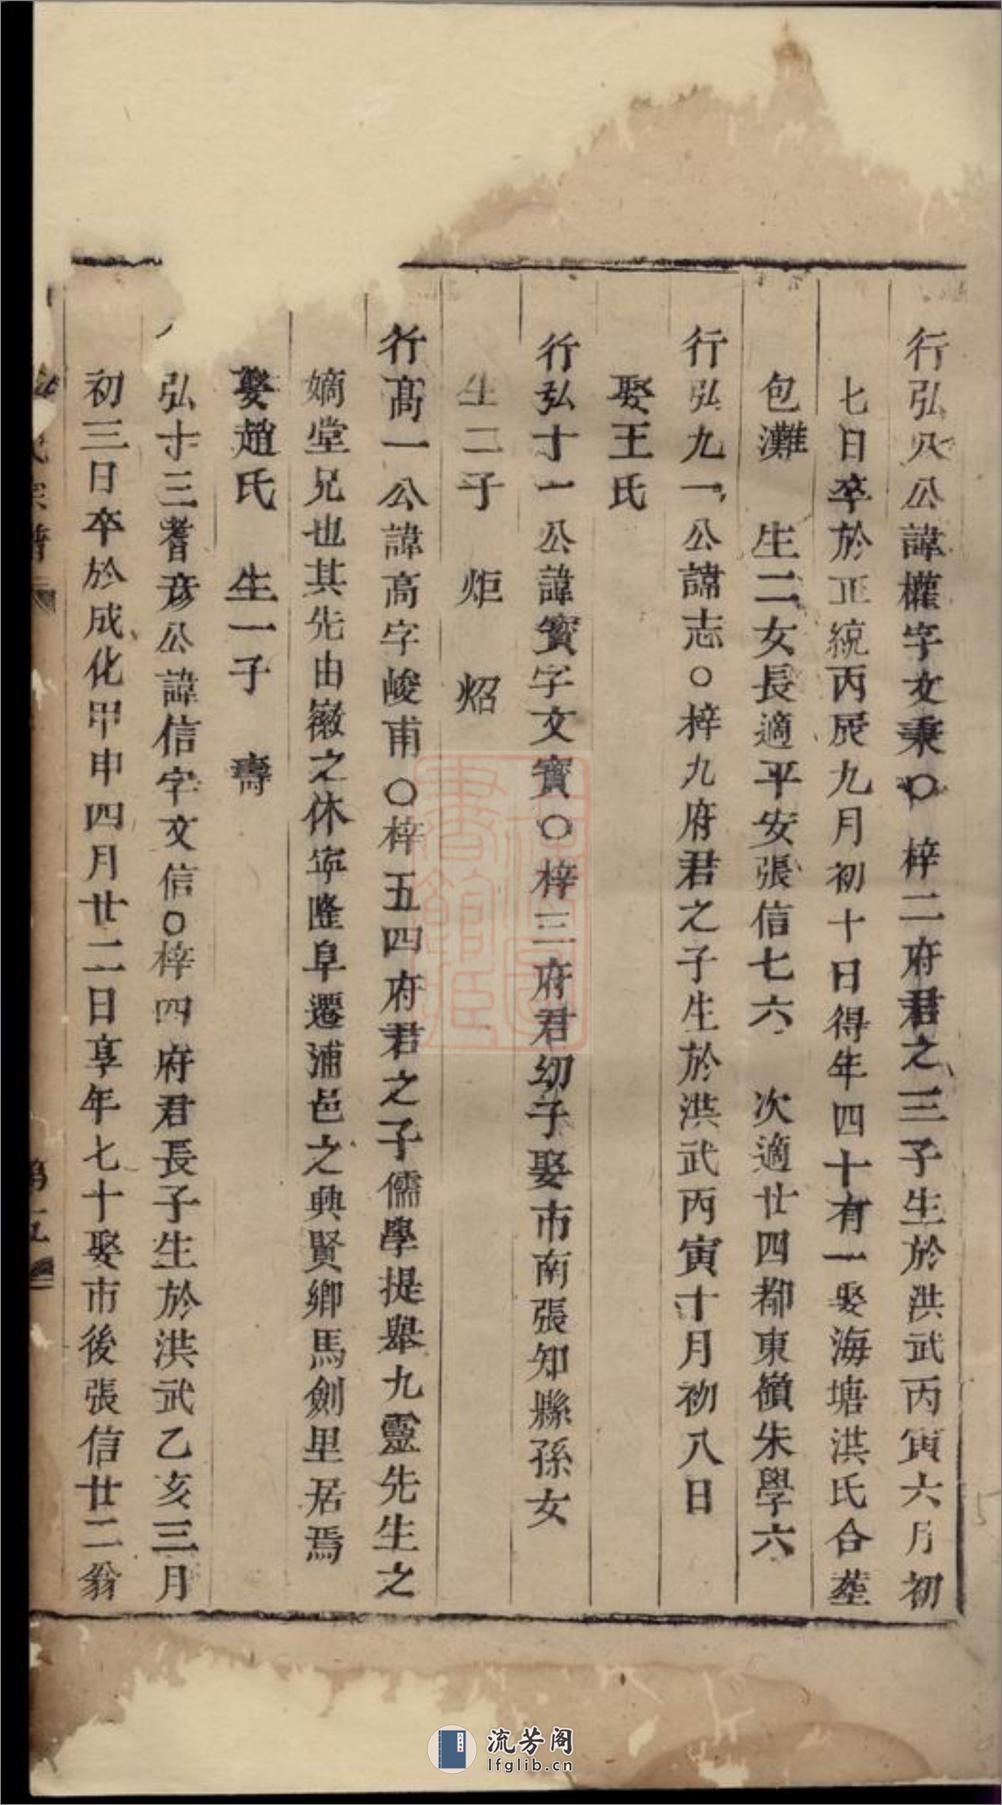 行弘八公諱權字文秉○梓二府君之三子生於洪武丙寅六月初
七日卒於正統丙辰九月初十日得年四十有一娶海塘洪氏合葬
包灘 生二女長適平安張信七六 次適廿四都東嶺朱學六
行弘九一公諱志○梓九府君之子生於洪武丙寅十月初八日
娶王氏
行弘十一公諱實字文實○梓三府君幼子娶市南張知縣孫女
生二子 炬 炤
行高一公諱高字峻甫○梓五四府君之子儒學提舉九靈先生之
嫡堂兄也其先由徽之休寧隆阜遷浦邑之興賢鄉馬劍里居焉
娶趙氏 生一子 壽
弘十三耆彥公諱信字文信○梓四府君長子生於洪武乙亥三月
初三日卒於成化甲申四月廿二日享年七十娶市後張信廿二翁
氏宗譜
流芳阁
lfglib.cn